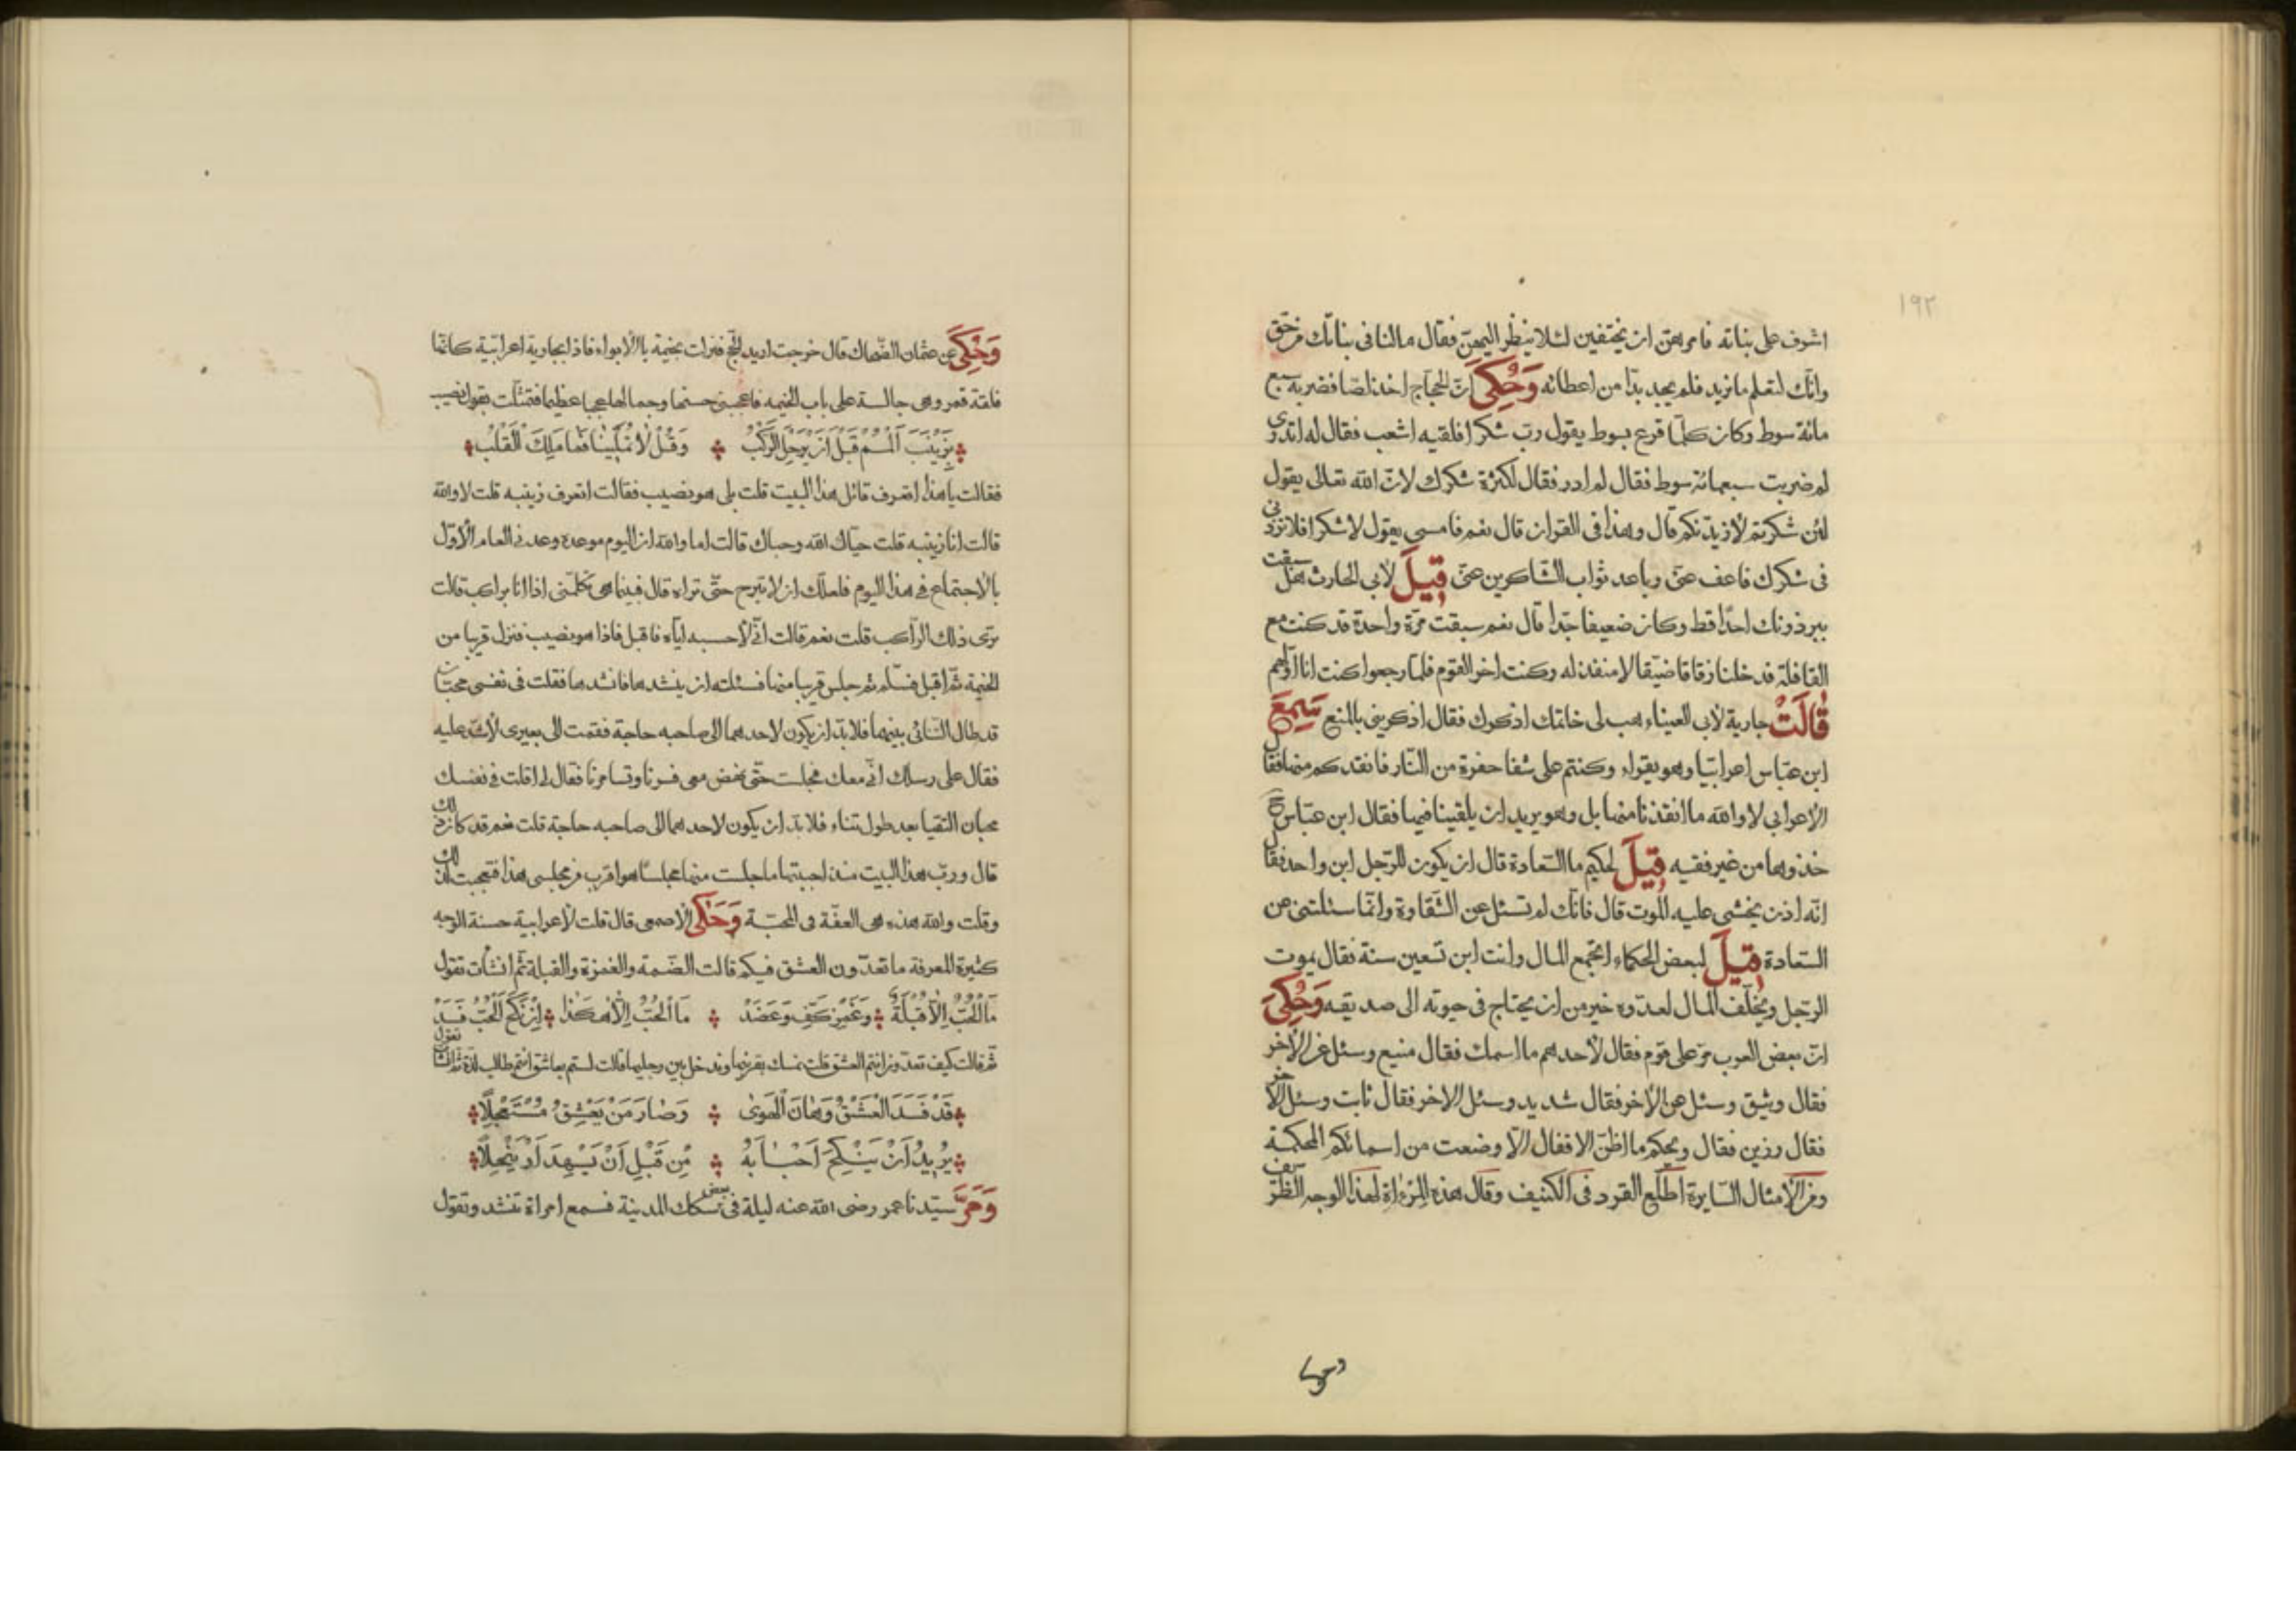 ١٩٢
اشرف على بناته فامرهن ان يختفين لئلا ينظر اليهن فقال مالنا فى بناتك من حق
وانك لتعلم ما نريد فلم يجد بدّا من اعطائه وَحُكِىَ ان الحجاج اخذ لصا فضربه سبع
مائة سوط وكان كلما قرع بسوط يقول رب شكرا فلقيه اشعب فقال له اتدرى
لم ضربت سبعمائة سوط فقال لم ادر فقال لكثرة شكرك لان الله تعالى يقول
لئن شكرتم لازيدنكم قال وهذا فى القران قال نعم فامسى يقول لا شكرا فلا تزدنى
فى شكرك فاعف عنى وباعد ثواب الشاكرين عنى قِيلَ لابى الحارث هل سبقت
ببرذونك احدا قط وكان ضعيفا جدا قال نعم سبقت مرة واحدة قد كنت مع
القافلة قد خلنا زقاقا ضيقا لا منفذ له وكنت اخر القوم فلما رجعوا كنت انا اولهم
قَالَتْ جارية لابى العيناء هب لى خاتمك اذكرك فقال اذكرينى بالمنع سَمِعَ
ابن عباس اعرابيا وهو يقراء وكنتم على شفا حفرة من النار فانقذكم منها فقال
الاعرابى لا والله ما انقذنا منها بل وهو يريد ان يلقينا فيها فقال ابن عباس
خذوها من غير فقيه قِيلَ لحكيم ما السعادة قال ان يكون للرجل ابن واحد فقال
انه اذن يخشى عليه الموت قال فانك لم تسئل عن الشقاوة وانما سئلتنى عن
السعادة قِيلَ لبعض الحكماء اتجمع المال وانت ابن تسعين سنة فقال يموت
الرجل ويخلف المال لعدوه خير من ان يحتاج فى حيوته الى صديقه وَحُكِىَ
ان بعض العرب مر على قوم فقال لاحدهم ما اسمك فقال منيع وسئل عن الاخر
فقال وثيق وسئل عن الاخر فقال شديد وسئل الاخر فقال ثابت وسئل الاخر
فقال رزين فقال ويحكم ما اظن الاقفال الا وضعت من اسمائكم المحكمة
ومن الامثال السايرة اطلع القرد فى الكنيف وقال هذه المرءاة لهذا الوجه الظريف
وحكى
وَحُكِىَ عن عثمان الضحاك قال خرجت اريد الحج فنزلت بخيمة بالابواء فاذا بجارية اعرابية كانما
فلقة قمر وهى جالسة على باب الخيمة فاعجبنى حسنها وجمالها عجبا عظيما فتمثلت بقول نصيب
بِزَيْنَبَ اَلْمُمْ قَبْلَ اَنْ يَرْحَلَ الرَّكْبُ وَقُلْ لَا تَمَلِّينَا فَمَا مَلَّكِ الْقَلْبُ
فقالت يا هذا اتعرف قائل هذا البيت قلت بلى هو نصيب فقالت اتعرف زينبه قلت لا والله
قالت انا زينبه قلت حياك الله وحباك قالت اما والله ان اليوم موعده وعدنى العام الاول
بالاجتماع فى هذا اليوم فلعلك ان لا تبرح حتى تراه قال فبينما هى تكلمنى اذا انا براكب قالت
ترى ذلك الراكب قلت نعم قالت انى لاحسبه اياه فاقبل فاذا هو نصيب فنزل قريبا من
الخيمة ثم اقبل فسلم ثم جلس قريبا منها فسئلته ان ينشدها فانشدها فقلت فى نفسى محبان
قد طال التنائى بينهما فلا بد ان يكون لاحدهما الى صاحبه حاجة فقمت الى بعيرى لاشد عليه
فقال على رسلك انى معك فجلست حتى نهض معى فسرنا وتسامرنا فقال لى اقلت فى نفسك
محبان التقيا بعد طول تناء فلا بد ان يكون لاحدهما الى صاحبه حاجة قلت نعم قد كان ذلك
قال ورب هذا البيت منذ احببتها ما جلست منها مجلسا هو اقرب من مجلسى هذا فتعجبت لذلك
وقلت والله هذه هى العفة فى المحبة وَحَكَى الاصمعى قال قلت لاعرابية حسنة الوجه
كثيرة المعرفة ما تعدون العشق فيكم قالت الضمة والغمزة والقبلة ثم انشات تقول
مَا الْحُبُّ اِلَّا قُبْلَةٌ وَغَمْزُ كَفٍّ وَعَضُدْ مَا الْحُبُّ اِلَّا هٰكَذَا اِنْ نُكِحَ الْحُبُّ فَسَدْ
ثم قالت كيف تعدون انتم العشق قلت نمسك بقرنيها وندخل بين رجليها قالت لستم بعاشق انتم طالب لذة ثم انشات تقول
قَدْ فَسَدَ الْعِشْقُ وَهَانَ الْهَوَىٰ وَصَارَ مَنْ يَعْشَقُ مُسْتَعْجِلًا
يُرِيدُ اَنْ يَنْكِحَ اَحْبَابَهُ مِنْ قَبْلِ اَنْ يَشْهَدَ اَوْ يَنْحِلَا
وَمَرَّ سيدنا عمر رضى الله عنه ليلة فى بعض سكك المدينة فسمع امراة تنشد وتقول